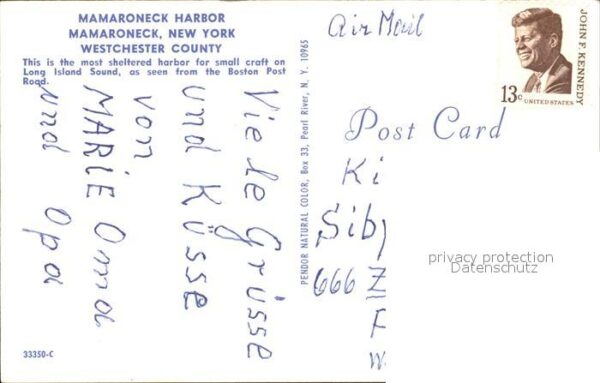 MAMARONECK HARBOR
MAMARONECK, NEW YORK
WESTCHESTER COUNTY
This is the most sheltered harbor for small craft on
Long Island Sound, as seen from the Boston Post
Road.
Viele Grüsse
und Küsse
von
MARIE Oma
und Opa
33350-C
PENDOR NATURAL COLOR, Box 33, Pearl River, N. Y. 10965
Air Mail
JOHN F. KENNEDY
13c
UNITED STATES
Post Card
Ki
Sib
666 Z
F
W
privacy protection
Datenschutz